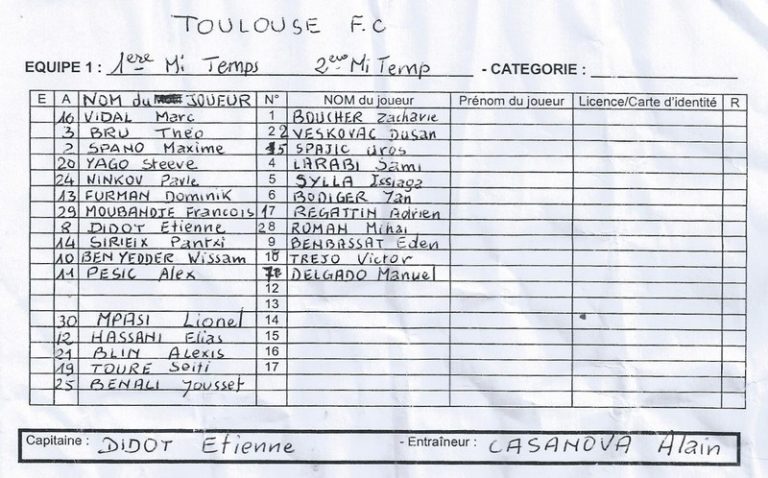 TOULOUSE F.C
EQUIPE 1 : 1ere Mi Temps 2eme Mi Temp - CATEGORIE :
E A NOM du JOUEUR N° NOM du joueur Prénom du joueur Licence/Carte d'identité R
16 VIDAL Marc 1 BOUCHER Zacharie
3 BRU Théo 22 VESKOVAC Dusan
2 SPANO Maxime 15 SPAJIC Uros
20 YAGO Steeve 4 LARABI Sami
24 NINKOV Pavle 5 SYLLA Issiaga
13 FURMAN Dominik 6 BODIGER Yan
29 MOUBANDJE Francois 17 REGATTIN Adrien
8 DIDOT Etienne 28 ROMAN Mihai
14 SIRIEIX Pantxi 9 BENBASSAT Eden
10 BEN YEDDER Wissam 10 TREJO Victor
11 PESIC Alex DELGADO Manuel
12
13
30 MPASI Lionel 14
12 HASSANI Elias 15
21 BLIN Alexis 16
19 TOURE Seiti 17
25 BENALI Youssef
Capitaine : DIDOT Etienne - Entraîneur : CASANOVA Alain